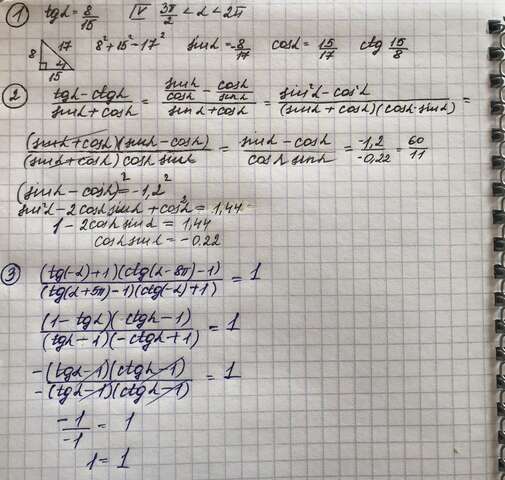 1) tgα = 8/15   IV   3π/2 < α < 2π
8 17 15 α   8² + 15² = 17²   sinα = -8/17   cosα = 15/17   ctg 15/8
2) (tgα - ctgα)/(sinα + cosα) = (sinα/cosα - cosα/sinα)/(sinα + cosα) = (sin²α - cos²α)/((sinα + cosα)(cosα·sinα)) =
((sinα + cosα)(sinα - cosα))/((sinα + cosα) cosα sinα) = (sinα - cosα)/(cosα sinα) = -1,2/-0,22 = 60/11
(sinα - cosα)² = -1,2²
sin²α - 2cosα sinα + cos²α = 1,44
1 - 2cosα sinα = 1,44
cosα sinα = -0,22
3) ((tg(-α) + 1)(ctg(α - 8π) - 1))/((tg(α + 5π) - 1)(ctg(-α) + 1)) = 1
((1 - tgα)(ctgα - 1))/((tgα - 1)(-ctgα + 1)) = 1
(-(tgα - 1)(ctgα - 1))/(-(tgα - 1)(ctgα - 1)) = 1
-1/-1 = 1
1 = 1